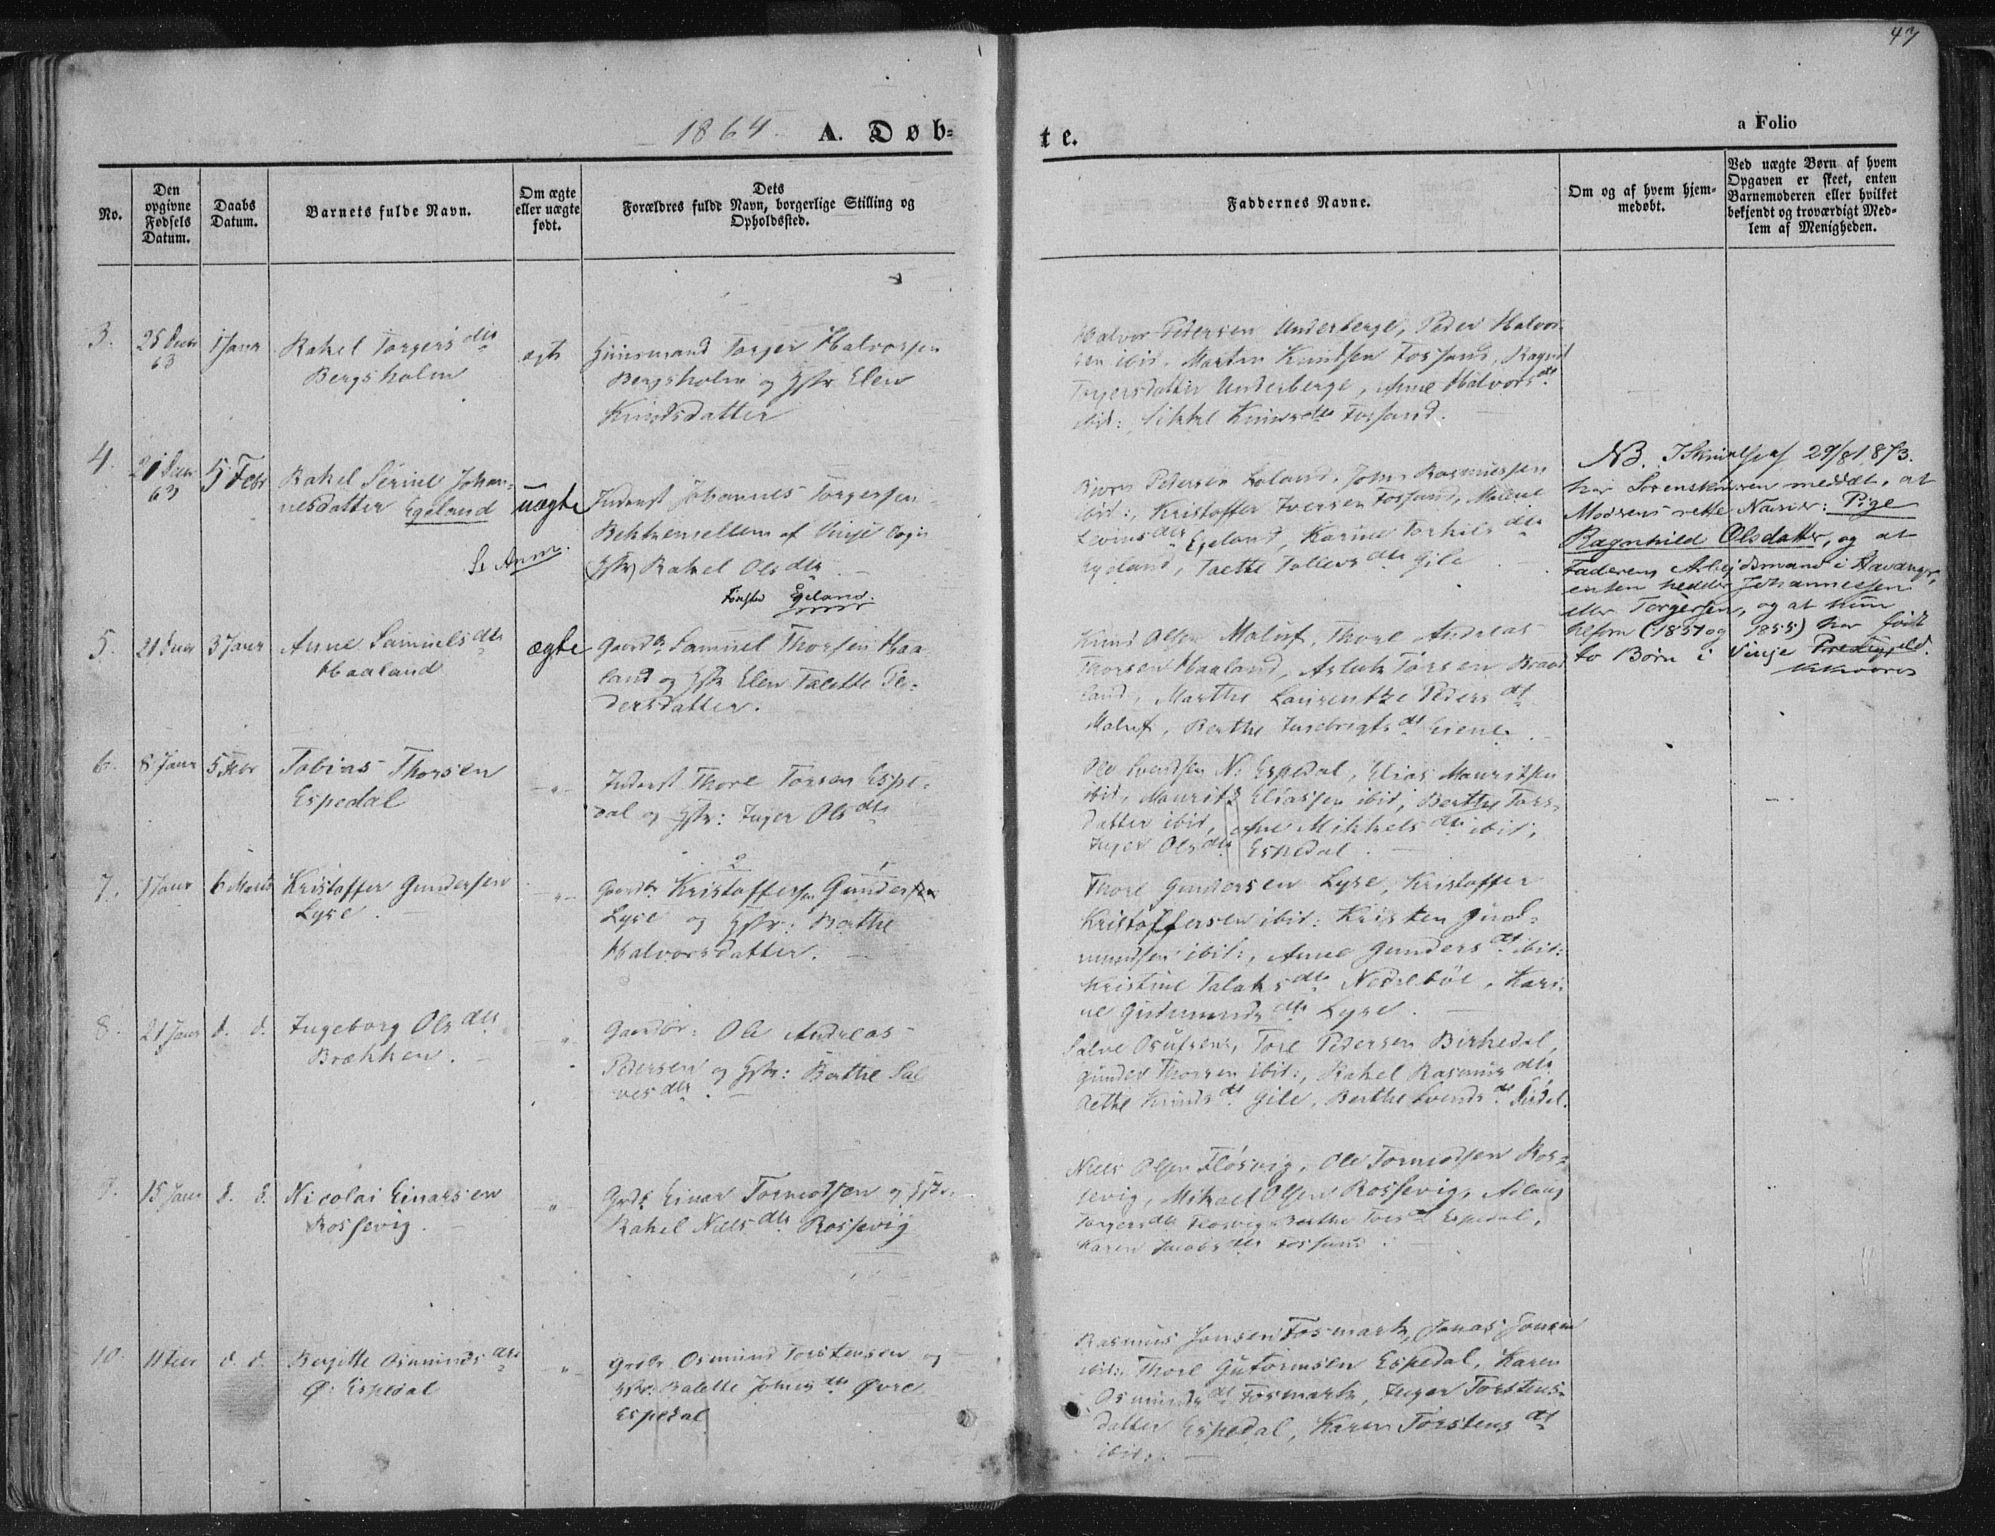 47
1864. A. Døb-
te.
a Folio
No.
Den opgivne Fødsels Datum.
Daabs Datum.
Barnets fulde Navn.
Om ægte eller uægte født.
Dets
Forældres fulde Navn, borgerlige Stilling og Opholdssted.
Faddernes Navne.
Om og af hvem hjem-
medøbt.
Ved uægte Børn af hvem
Opgaven er skeet, enten
Barnemoderen eller hvilket
bekjendt og troværdigt Med-
lem af Menigheden.
3.
63
1 Janr
Rakel Torgersdtr
Bergsholm
ægte
Huusmand Torger Halvorsen
Bergsholm og Hstr Elen
Knudsdatter
Halvor Pedersen Underberge, Peder Halvor-
sen ibid, Morten Knudsen Fossand, Ragnil
Torgersdatter Underberge, Anne Halvorsdtr
ibid: Sikkel Knudsdtr Fossand.
4.
21 Decr
63
5 Febr
Rakel Serine Johan-
nesdatter Egeland
uægte
Se Anm.
Inderst Johannes Torgersen
af Vinje Sogn
(Hstr) Rakel Olsdtr
Egeland.
Bjørn Pedersen Løland, John Rasmussen
ibid:, Kristoffer Iversen Fossand, Malene
Egeland, Karine Torkilsdtr
Egeland, Taethe Tollevsdtr Gile
NB. I Skrivelse af 29/8 1873.
har Sorenskriveren meddelt, at
Moderens rette Navn er: Pige
Ragnhild Olsdatter, og at
Faderen, Arbejdsmand i Stavanger,
enten hedder Johannessen
eller Torgersen, og at hun
(1851 og 1855) har født
to Børn i Vinje Prestegjeld.
5.
21 Decr
3 Janr
Anne Samuelsdtr
Haaland
ægte
Gaardbr Samuel Thorsen Haa-
land og Hstr Elen Talette Pe-
dersdatter.
Knud Olsen Maluf, Thore Andreas
Thorsen Haaland, Aslak Torsen Braa-
land, Marthe Laurentze Pedersdt
Maluf, Berthe Ingebrigtsdt Eiene.
6.
8 Janr
5 Febr
Tobias Thorsen
Espedal
-"-
Inderst Thore Torsen Espe-
dal og Hstr: Inger Olsdtr
Ole Svendsen N: Espedal, Elias Mauritsen
ibid, Mauritz Eliassen ibid, Berthe Tors-
datter ibid, Ane Mikkelsdtr ibid,
Inger Olsdtr Espedal.
7.
1 Janr
6 Marts
Kristoffer Gundersen
Lyse.
-"-
2 1
Gaardbr Kristoffersen Gunder
Lyse og Hstr: Berthe
Halvorsdatter.
Thore Gundersen Lyse, Kristoffer
Kristoffersen ibid: Kristen Gud-
mundsen ibid:, Anne Gundersdt ibid:
Kristine Talaksdtr Nedrebøe, Kari-
ne Gudmundsdtr Lyse.
8.
21 Janr
d. d.
Ingeborg Olsdtr
Brækken.
-"-
Gaardbr: Ole Andreas
Pedersen og Hstr: Berthe Sal-
vesdtr.
Salve Osufsens, Tore Pedersen Birkedal,
Gunder Thorsen ibid:, Rakel Rasmusdtr
Aethe Knudsdt Gile, Berthe Svendsdt
9.
15 Janr
d. d.
Nicolai Einarsen
Rossevig.
-"-
Grdbr Einar Tormodsen og Hstr.
Rakel Nielsdtr Rossevig
Niels Olsen Fløsvig, Ole Tormodsen Ros-
sevig, Mikael Olsen Rossevig,
Torgersdtr Flosvig Berthe Torsdt Espedal,
Karen Jacobsdtr Fossand.
10.
11 Febr
d. d.
Bergitte Osmundsdtr
Ø: Espedal
-"-
Grdbr Osmund Torstensen og
Hstr: Balette Johnsdtr Øvre
Espedal
Rasmus Jonsen Fosmark, Jonas Jonsen
ibid: Thore Gutormsen Espedal, Karen
Osmundsdt Fosmark, Inger Torstens-
datter Espedal, Karen Torstensdt
ibid.